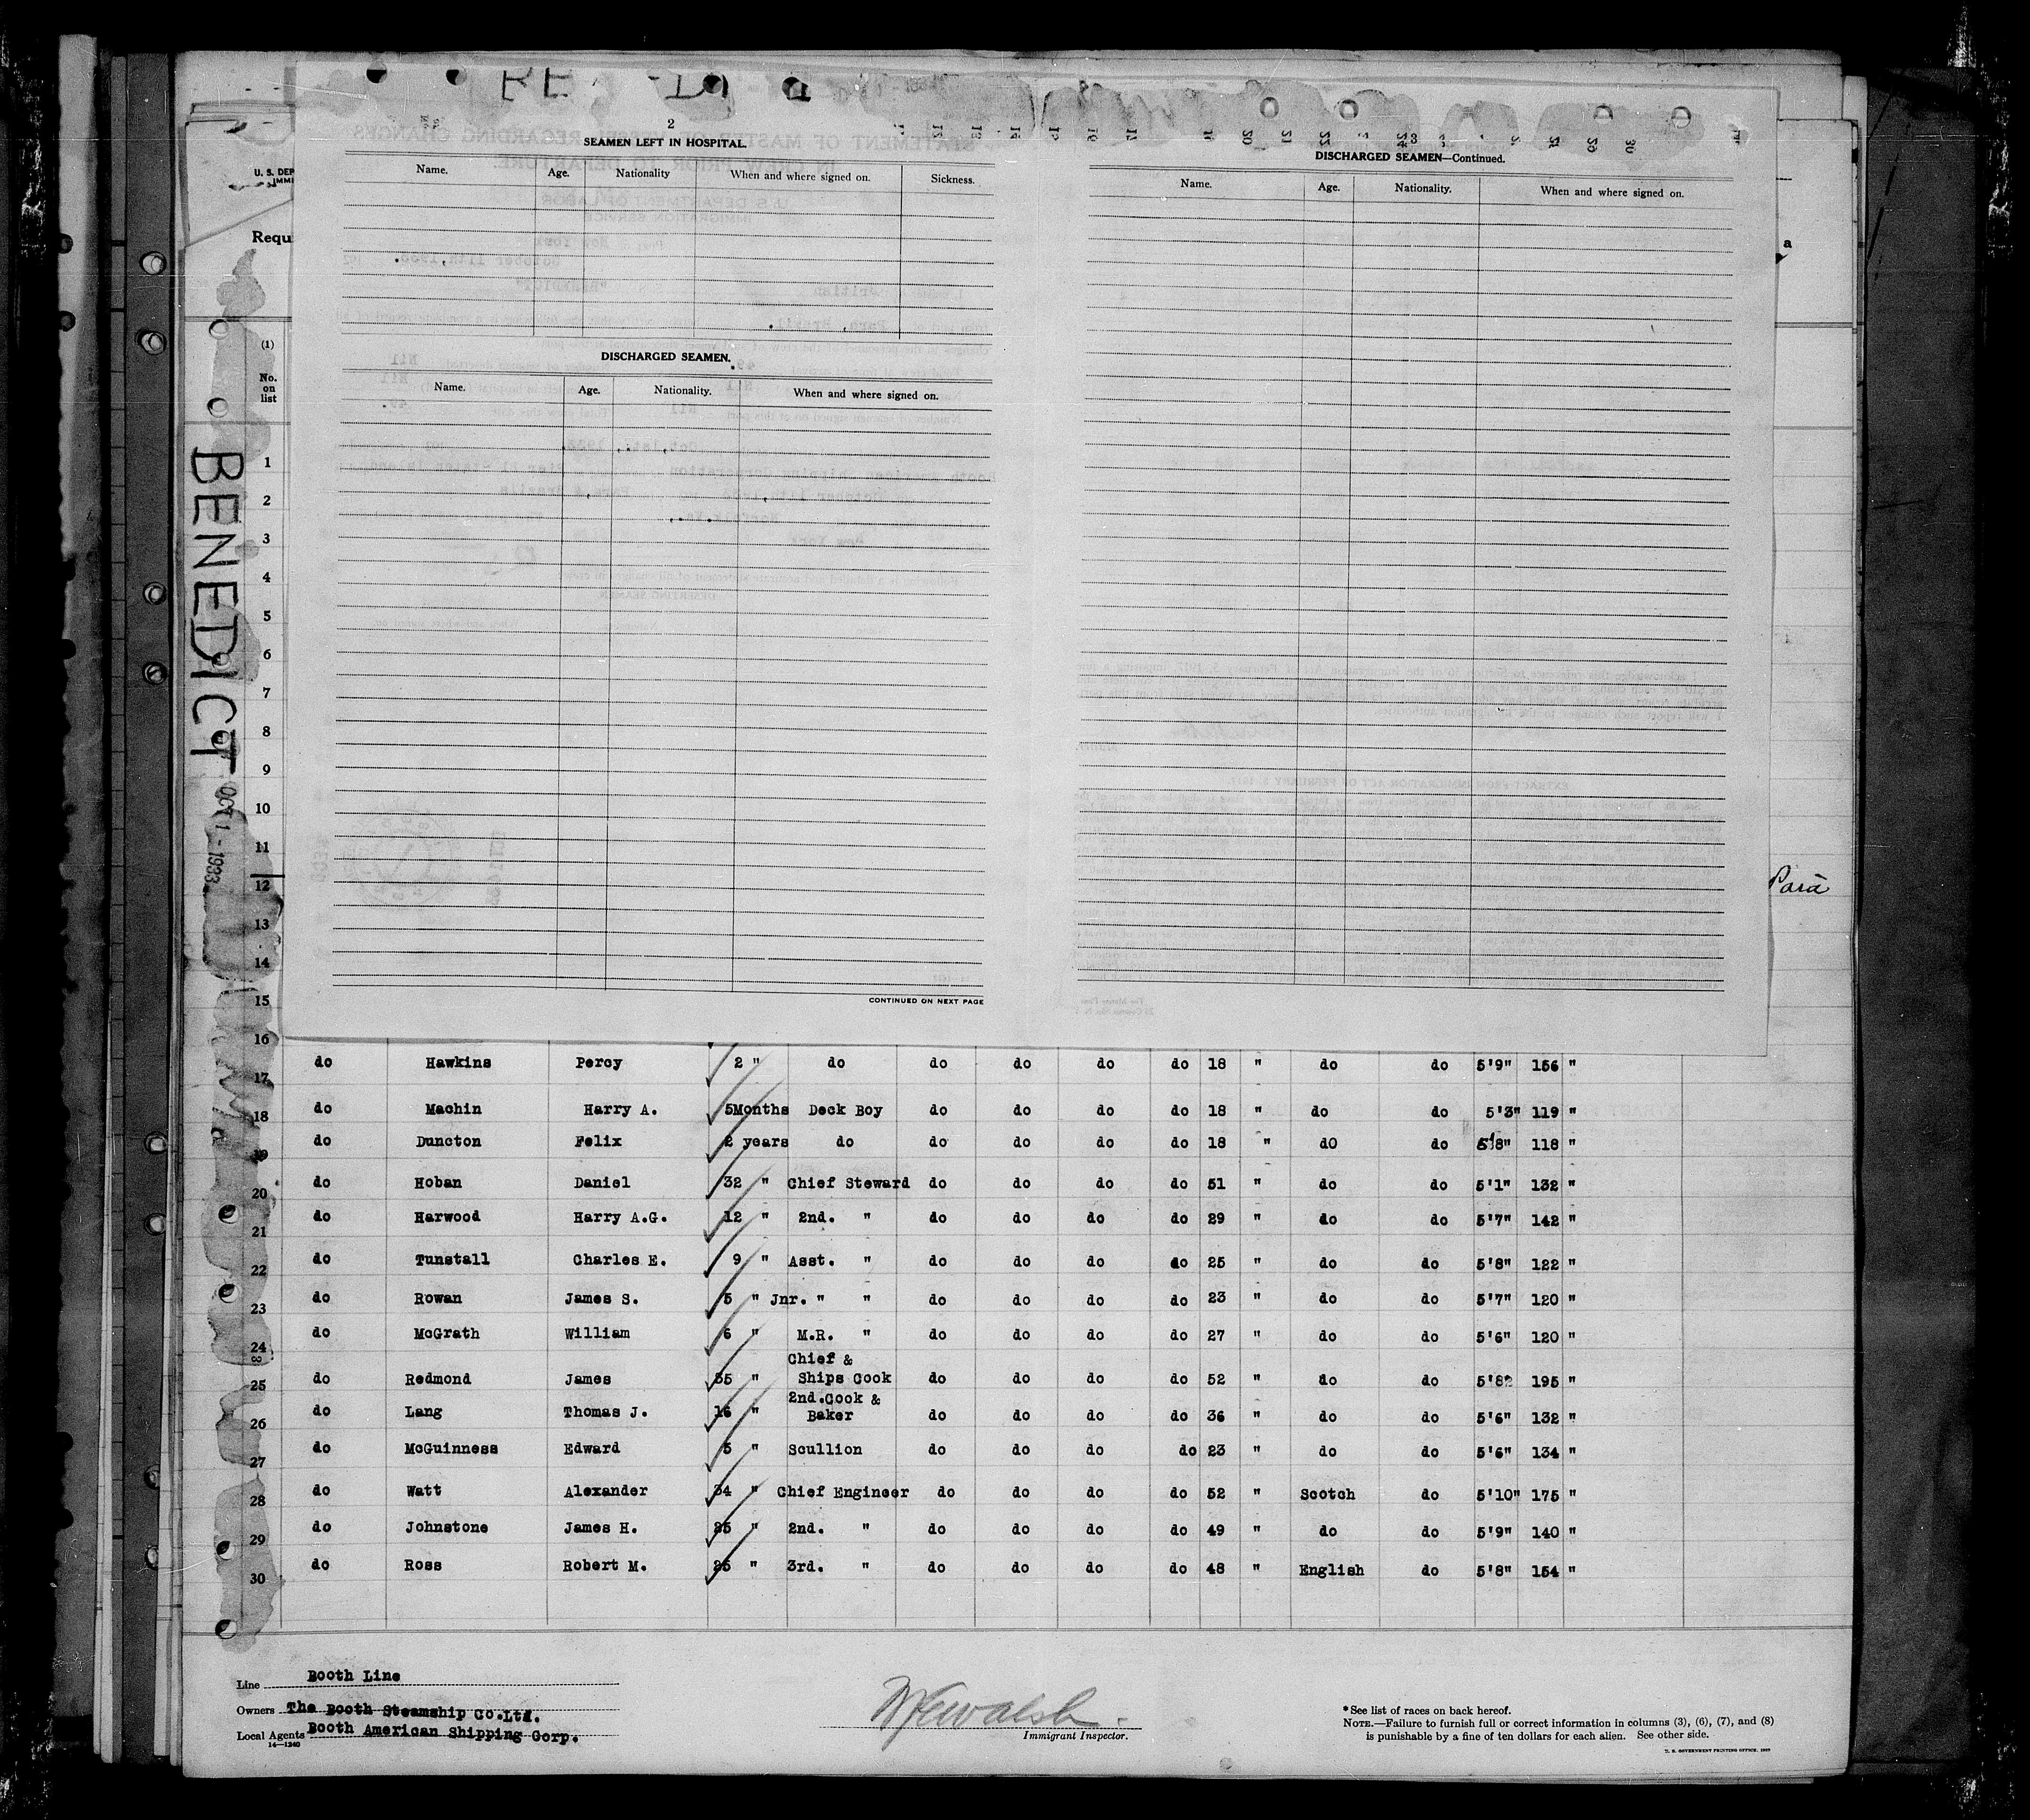 2
SEAMEN LEFT IN HOSPITAL.
Name. Age. Nationality When and where signed on. Sickness.
DISCHARGED SEAMEN.
Name. Age. Nationality. When and where signed on.
CONTINUED ON NEXT PAGE
DISCHARGED SEAMEN—Continued.
Name. Age. Nationality. When and where signed on.
U. S. DEP
IMMI
Requ
a
(1)
No.
on
list
BENEDICT
OCT 1 - 1933
1
2
3
4
5
6
7
8
9
10
11
12
Pará
13
14
15
16
17 do Hawkins Percy 2 " do do do do do 18 " do do 5'9" 156 "
18 do Machin Harry A. 5Months Deck Boy do do do do 18 " do do 5'3" 119 "
19 do Duncton Felix 2 years do do do do do 18 " dO do 5'8" 118 "
20 do Hoban Daniel 32 " Chief Steward do do do do 51 " do do 5'1" 132 "
21 do Harwood Harry A.G. 12 " 2nd. " do do do do 29 " do do 5'7" 142 "
22 do Tunstall Charles E. 9 " Asst. " do do do do 25 " do do 5'8" 122 "
23 do Rowan James S. 5 " Jnr. " " do do do do 23 " do do 5'7" 120 "
24 do McGrath William 6 " M.R. " do do do do 27 " do do 5'6" 120 "
Chief &
25 do Redmond James 35 " Ships Cook do do do do 52 " do do 5'8" 195 "
2nd.Cook &
26 do Lang Thomas J. 16 " Baker do do do do 36 " do do 5'6" 132 "
27 do McGuinness Edward 5 " Scullion do do do do 23 " do do 5'6" 134 "
28 do Watt Alexander 34 " Chief Engineer do do do do 52 " Scotch do 5'10" 175 "
29 do Johnstone James H. 25 " 2nd. " do do do do 49 " do do 5'9" 140 "
30 do Ross Robert M. 25 " 3rd. " do do do do 48 " English do 5'8" 154 "
Line Booth Line
Owners The Booth Steamship Co.Ltd.
Local Agents Booth American Shipping Corp.
14—1240
Immigrant Inspector.
*See list of races on back hereof.
NOTE.—Failure to furnish full or correct information in columns (3), (6), (7), and (8)
is punishable by a fine of ten dollars for each alien. See other side.
U. S. GOVERNMENT PRINTING OFFICE. 1929